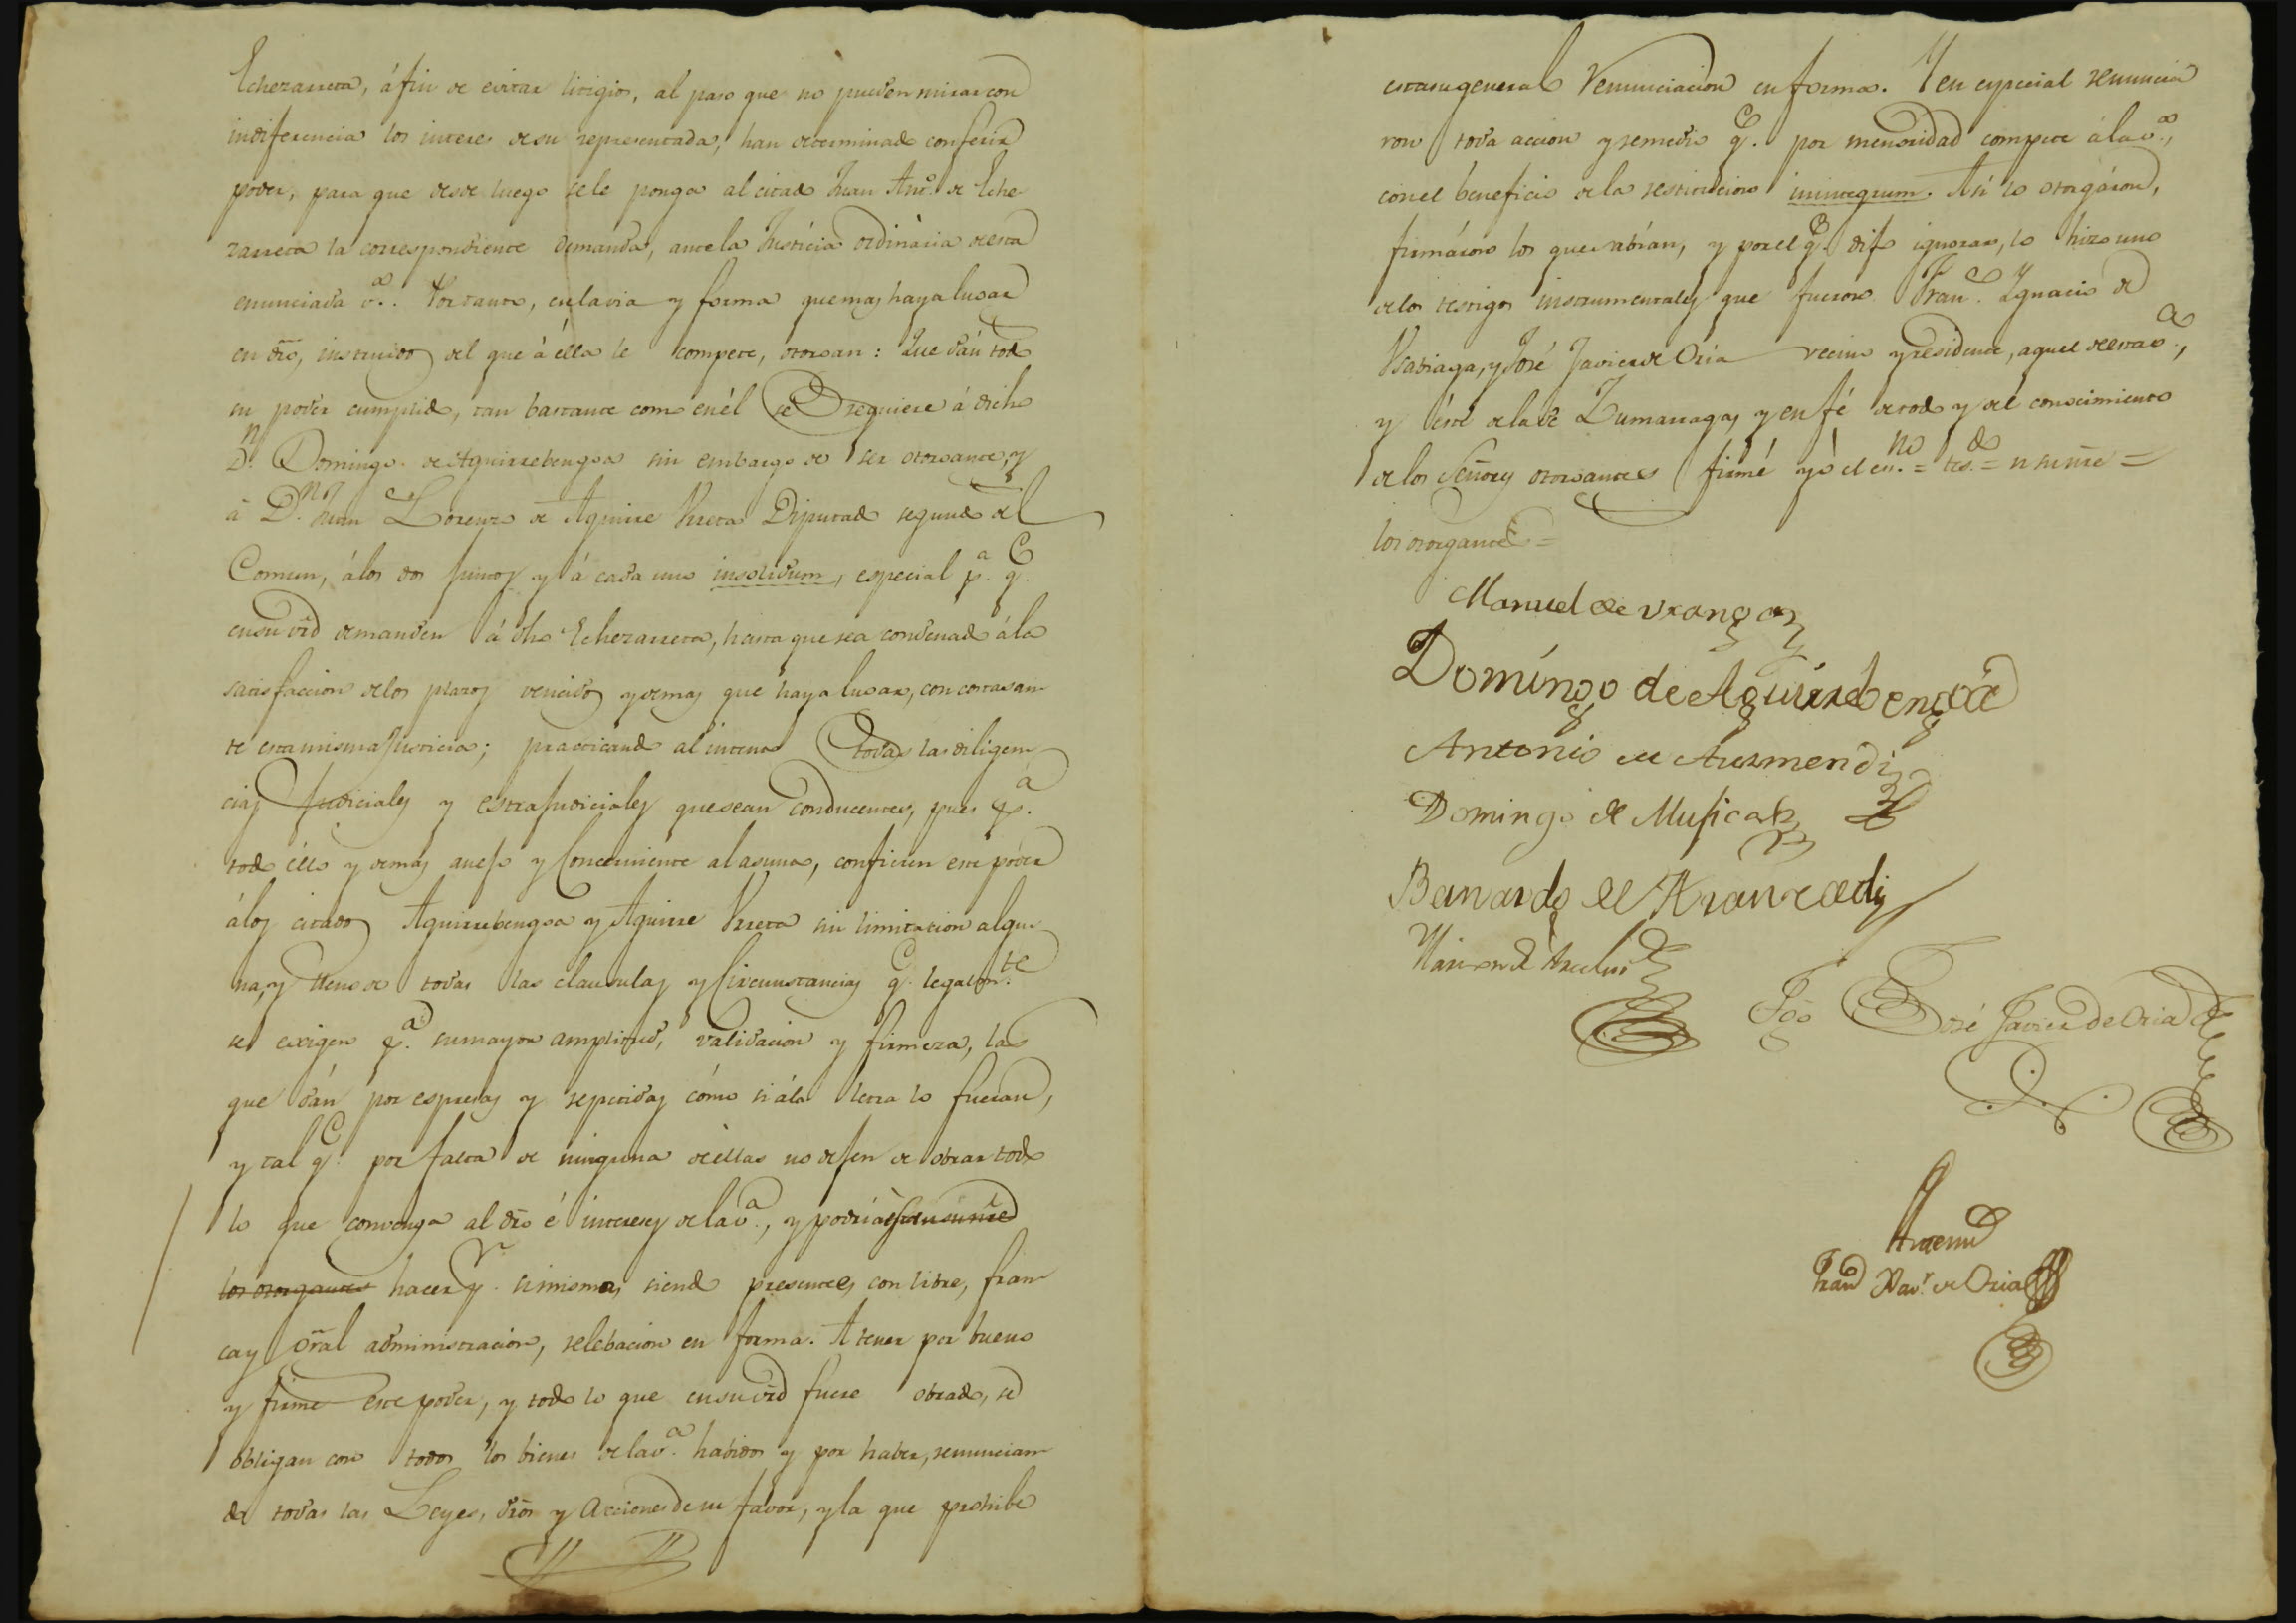 Echezarreta, á fin de evitar litigios, al paso que no pueden mirar con
indiferencia los interes de su representada, han determinado conferir
poder, para que desde luego se le ponga al citado Juan Anto. de Eche
zarreta la correspondiente demanda, ante la Justicia ordinaria de esta
enunciada v.a. Por tanto, en la via y forma que mas haya lugar
en dro, instruidos del que á élla le compete, otorgan: Que dán todo
su podér cumplido, tan bastante como en él se requiere á dicho
Dn. Domingo de Aguirrebengoa sin embargo de ser otorgante, y
á Dn. Juan Lorenzo de Aguirre Urreta Diputado segundo del
Comun, á los dos juntos y á cada uno insolidum, especial pa. qe.
en su vrd demanden á dho Echezarreta, hasta que sea condenado á la
satisfaccion de los plazos vencidos y demas que haya lugar, con costas an
te esta misma Justicia; practicando al intento todas las diligen
cias Judiciales y estrajudiciales que sean conducentes, pues pa.
todo éllo y demas anejo y Concerniente al asunto, confieren este podér
á los citados Aguirrebengoa y Aguirre Urreta sin limitacion algu
na, y lleno de todas las clausulas y Circunstancias qe. legalmte.
se exigen pa. su mayor amplitud, validacion y firmeza, las
que dán por espresas y repetidas cómo si á la letra lo fueran,
y tal qe. por falta de ninguna de éllas no dejen de obrar todo
lo que convenga al dro é intereses de la va., y podrian en su nre
los otorgantes hacer pr. si mismos siendo presentes con libre, fran
ca y gral administración, relebacion en forma. A tener por bueno
y firme este poder, y todo lo que en su vrd fuere obrado, se
obligan con todos los bienes de la va. habidos y por haber, renuncian
do todas las Leyes, dros y Acciones de su favor, y la que prohibe
esta su general renunciacion en forma. Y en especial renuncia
ron toda accion y remedio qe. por menoridad compete á la va.,
con el beneficio de la restitucion inintegrum. Asi lo otorgáron,
firmáron los que sabían, y por el qe. dijo ignorar, lo hizo uno
de los testigos instrumentales que fueron Franco. Ignacio de
Usabiaga, y José Javier de Oria vecino y residente, aquel de esta va.,
y éste de la de Zumarraga, y en fé de todo y del conocimiento
de los Señores otorgantes firmé yo el eno. = tdo. = n su nre =
los otorgantes =
Manuel de Uranga
Domingo de Aguirrebengoa
Antonio de Auzmendi
Domingo de Mujica
Bernardo de Aranzadi
Tgo José Javier de Oria
Antemi
Franco Xavr. de Oria